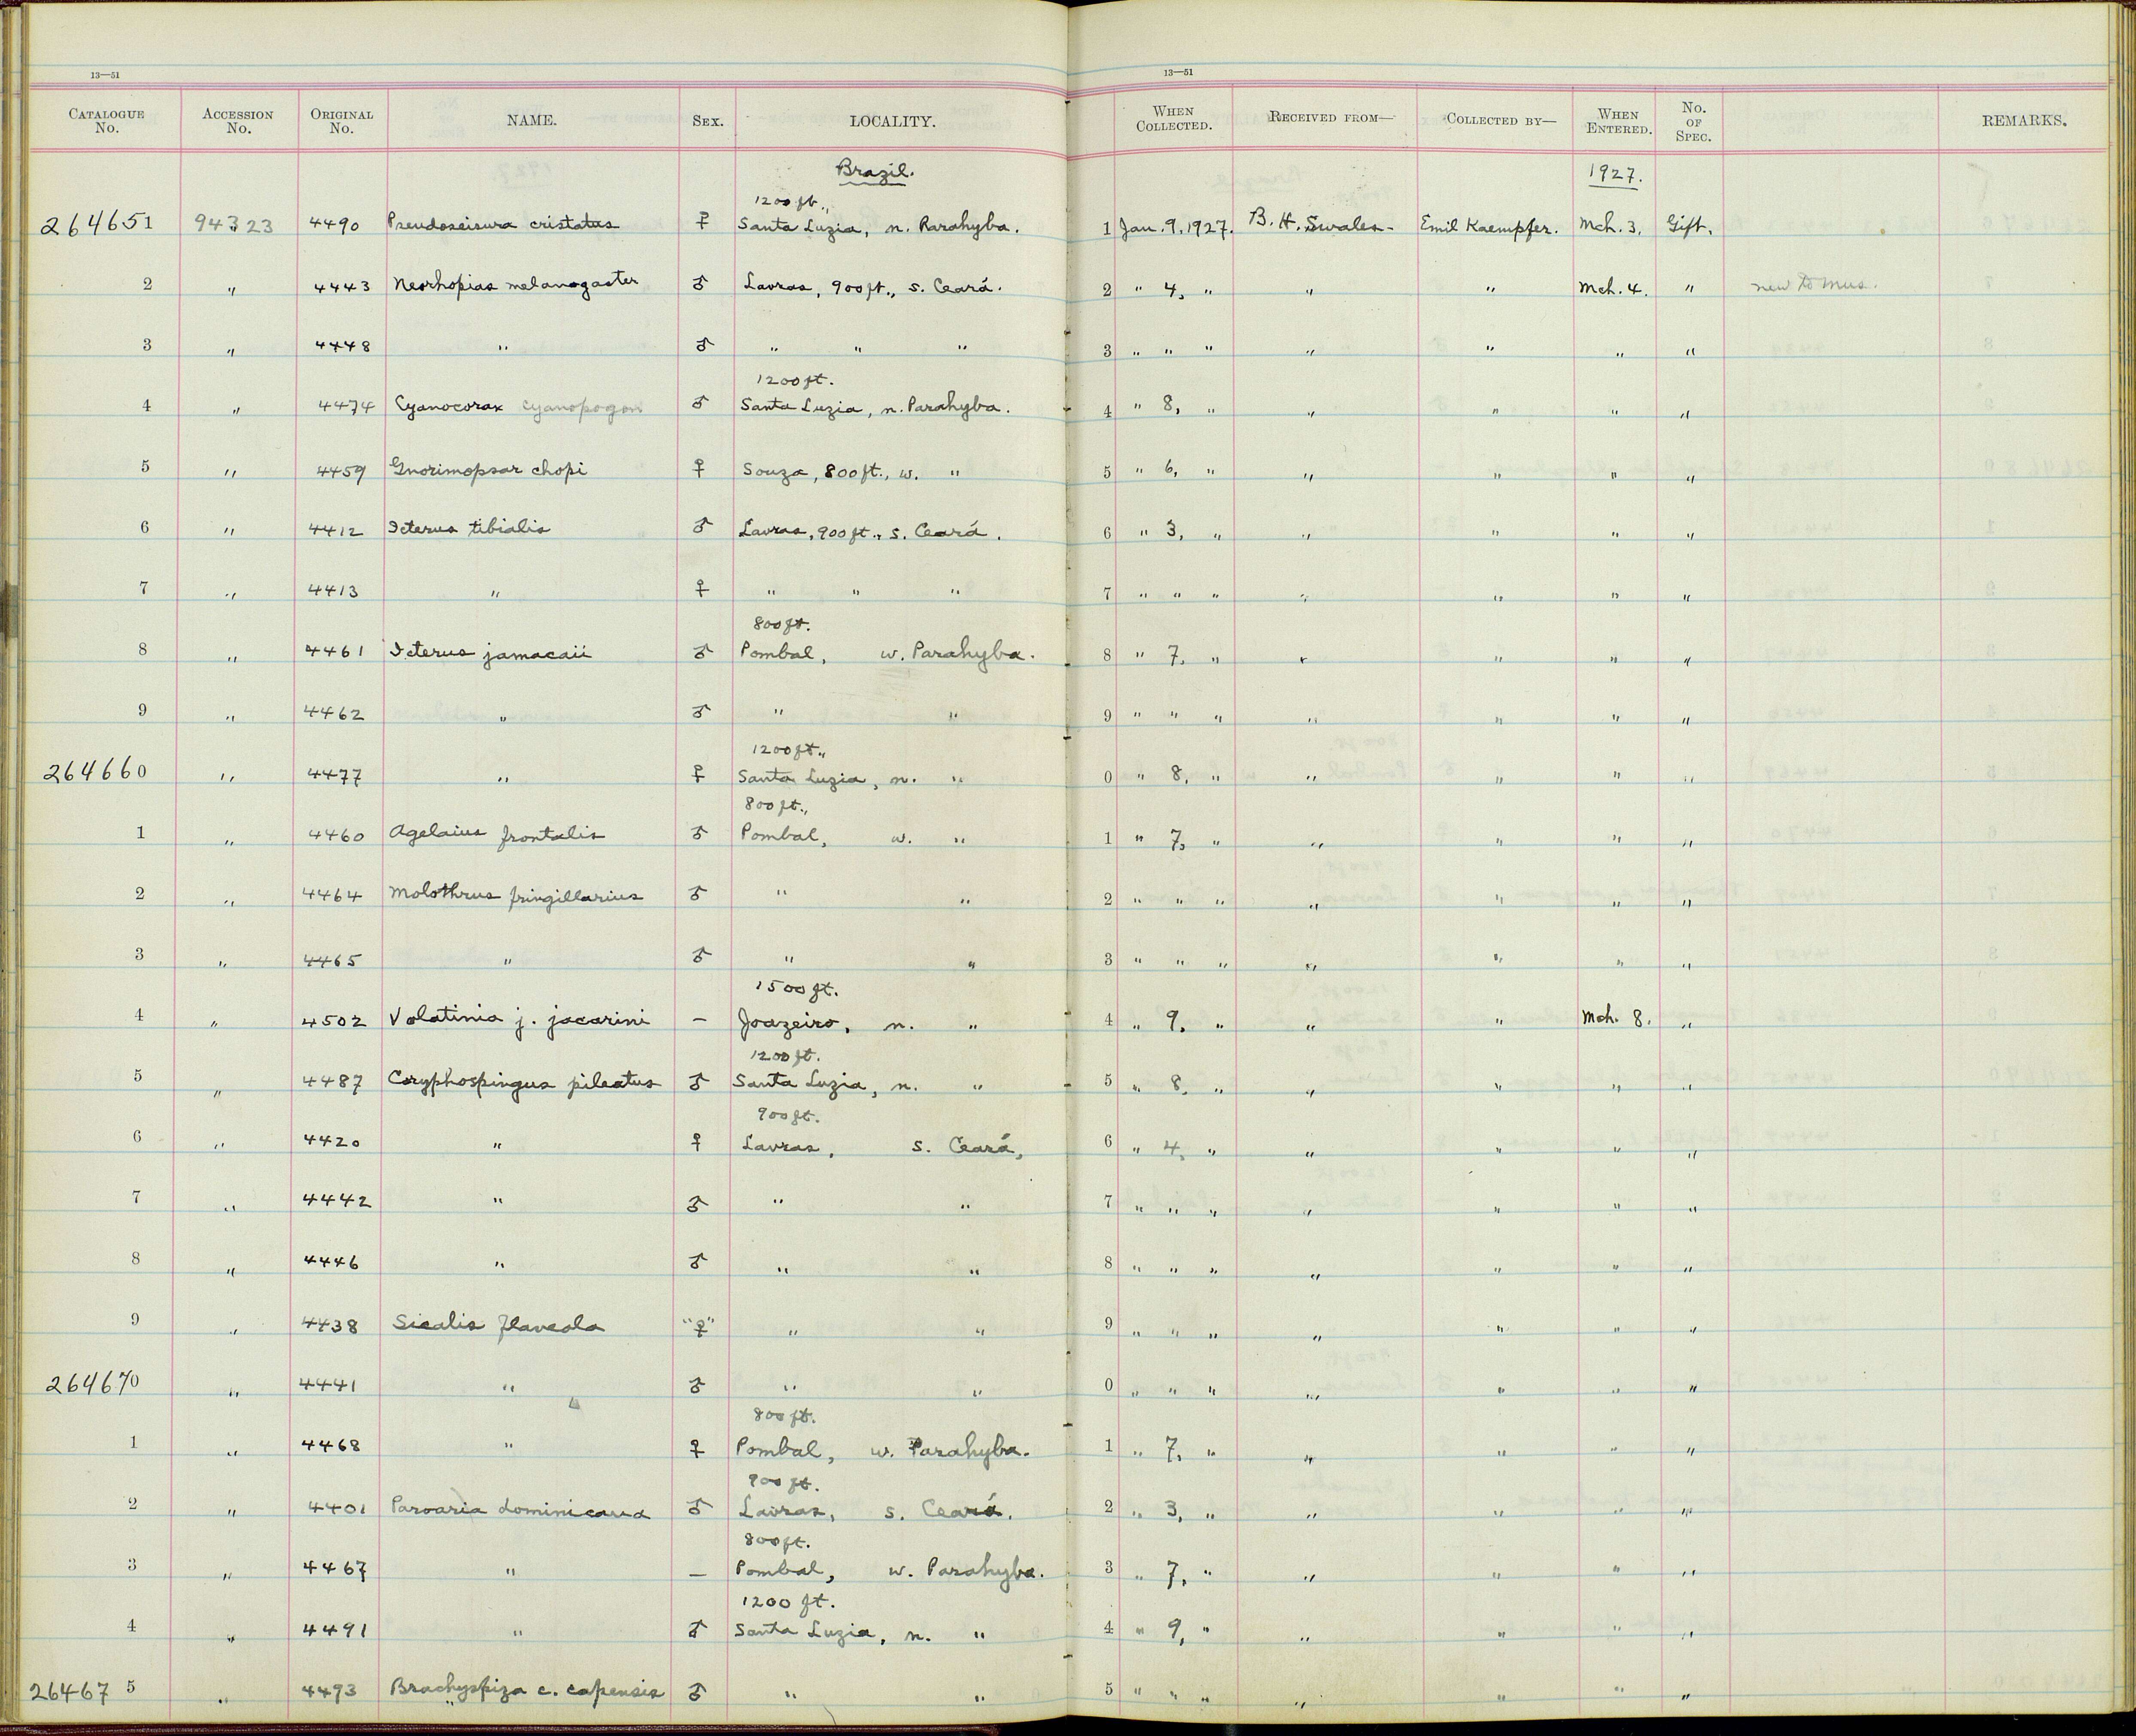 13—51 13—51
CATALOGUE No. ACCESSION No. ORIGINAL No. NAME. SEX. LOCALITY. WHEN COLLECTED. RECEIVED FROM— COLLECTED BY— WHEN ENTERED. NO. OF SPEC. REMARKS.
Brazil. 1927.
1200 ft.,
264651 94323 4490 Pseudoseisura cristatus ♀ Santa Luzia, n. Parahyba. 1 Jan. 9, 1927. B. H. Swales- Emil Kaempfer. Mch. 3. Gift.
2 " 4443 Neorhopias melanogaster ♂ Lavras, 900 ft., s. Ceará. 2 " 4, " " " Mch. 4. " new to Mus.
3 " 4448 " ♂ " " " 3 " " " " " " "
1200 ft.
4 " 4474 Cyanocorax cyanopogon ♂ Santa Luzia, n. Parahyba. 4 " 8, " " " " "
5 " 4459 Gnorimopsar chopi ♀ Souza, 800 ft., w. " 5 " 6, " " " " "
6 " 4412 Icterus tibialis ♂ Lavras, 900 ft., s. Ceará. 6 " 3, " " " " "
7 " 4413 " ♀ " " " 7 " " " " " " "
800 ft.
8 " 4461 Icterus jamacaii ♂ Pombal, w. Parahyba. 8 " 7, " " " " "
9 " 4462 " ♂ " " 9 " " " " " " "
1200 ft.,
264660 " 4477 " ♀ Santa Luzia, n. " 0 " 8, " " " " "
800 ft.,
1 " 4460 Agelaius frontalis ♂ Pombal, w. " 1 " 7, " " " " "
2 " 4464 Molothrus fringillarius ♂ " " 2 " " " " " " "
3 " 4465 " ♂ " " 3 " " " " " " "
1500 ft.
4 " 4502 Volatinia j. jacarini – Joazeiro, n. " 4 " 9, " " " Mch. 8. "
1200 ft.
5 " 4487 Coryphospingus pileatus ♂ Santa Luzia, n. " 5 " 8, " " " " "
900 ft.
6 " 4420 " ♀ Lavras, s. Ceará, 6 " 4, " " " " "
7 " 4442 " ♂ " " 7 " " " " " " "
8 " 4446 " ♂ " " 8 " " " " " " "
9 " 4438 Sicalis flaveola "♀" " " 9 " " " " " " "
264670 " 4441 " ♂ " " 0 " " " " " " "
800 ft.
1 " 4468 " ♀ Pombal, w. Parahyba. 1 " 7, " " " " "
900 ft.
2 " 4401 Paroaria dominicana ♂ Lavras, s. Ceará. 2 " 3, " " " " "
800 ft.
3 " 4467 " – Pombal, w. Parahyba. 3 " 7, " " " " "
1200 ft.
4 " 4491 " ♂ Santa Luzia, n. " 4 " 9, " " " " "
264675 " 4493 Brachyspiza c. capensis ♂ " " 5 " " " " " " "